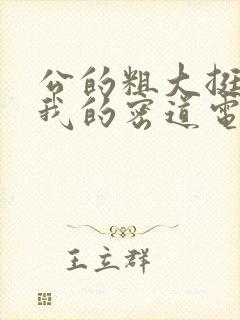 公的粗大挺
我的密道电
王立群